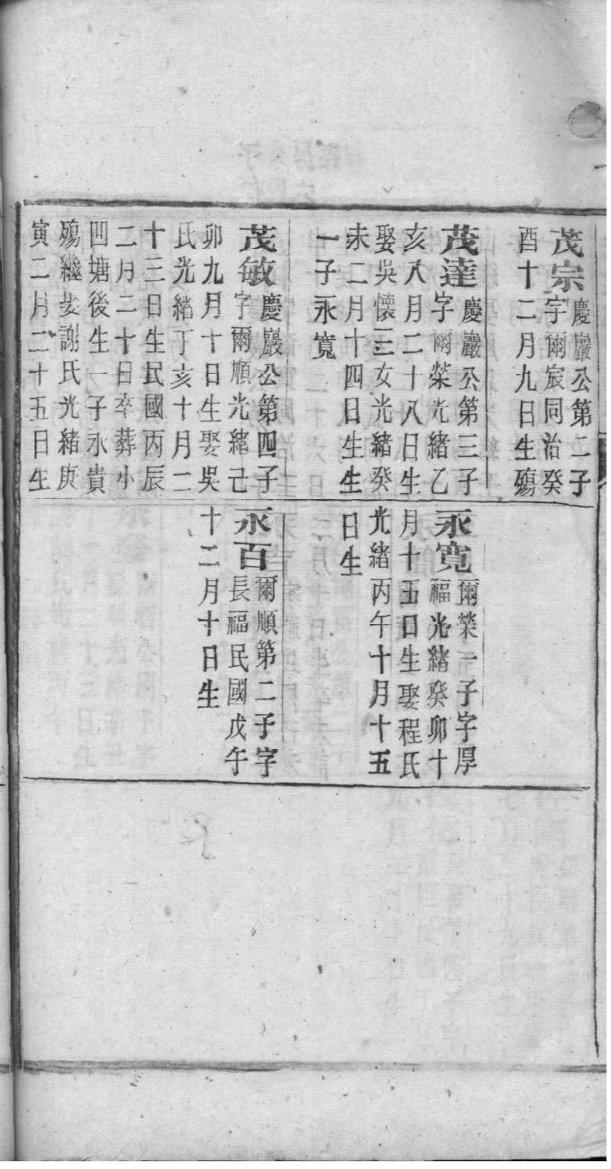 茂宗慶巖公第二子
字爾宸同治癸
酉十二月九日生殤
茂達慶巖公第三子
字爾榮光緒乙
亥八月二十八日生
娶吳懷三女光緒癸
未二月十四日生生
一子永寬
茂敏慶巖公第四子
字爾順光緒己
卯九月十日生娶吳
氏光緒丁亥十月二
十三日生民國丙辰
二月二十日卒葬小
凹塘後生一子永貴
殤繼娶謝氏光緒庚
寅二月二十五日生
永寬爾榮一子字厚
福光緒癸卯十
月十五日生娶程氏
光緒丙午十月十五
日生
永百爾順第二子字
長福民國戊午
十二月十日生